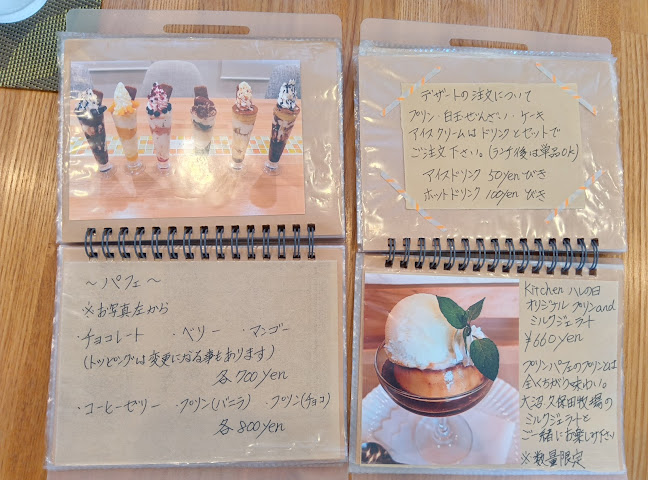 ～パフェ～
※お写真左から
・チョコレート ・ベリー ・マンゴー
(トッピングは変更になる事もあります)
各700yen
・コーヒーゼリー ・プリン(バニラ) ・プリン(チョコ)
各800yen
デザートの注文について
プリン・白玉ぜんざい・ケーキ
アイスクリームはドリンクとセットで
ご注文下さい。(ランチ後は単品OK)
アイスドリンク 50yenびき
ホットドリンク 100yenびき
Kitchen ハレの日
オリジナル プリンand
ミルクジェラート
¥660yen
プリンパフェのプリンとは
全くちがう味わい。
大沼 久保田牧場の
ミルクジェラートと
ご一緒にお楽しみ下さい
※数量限定